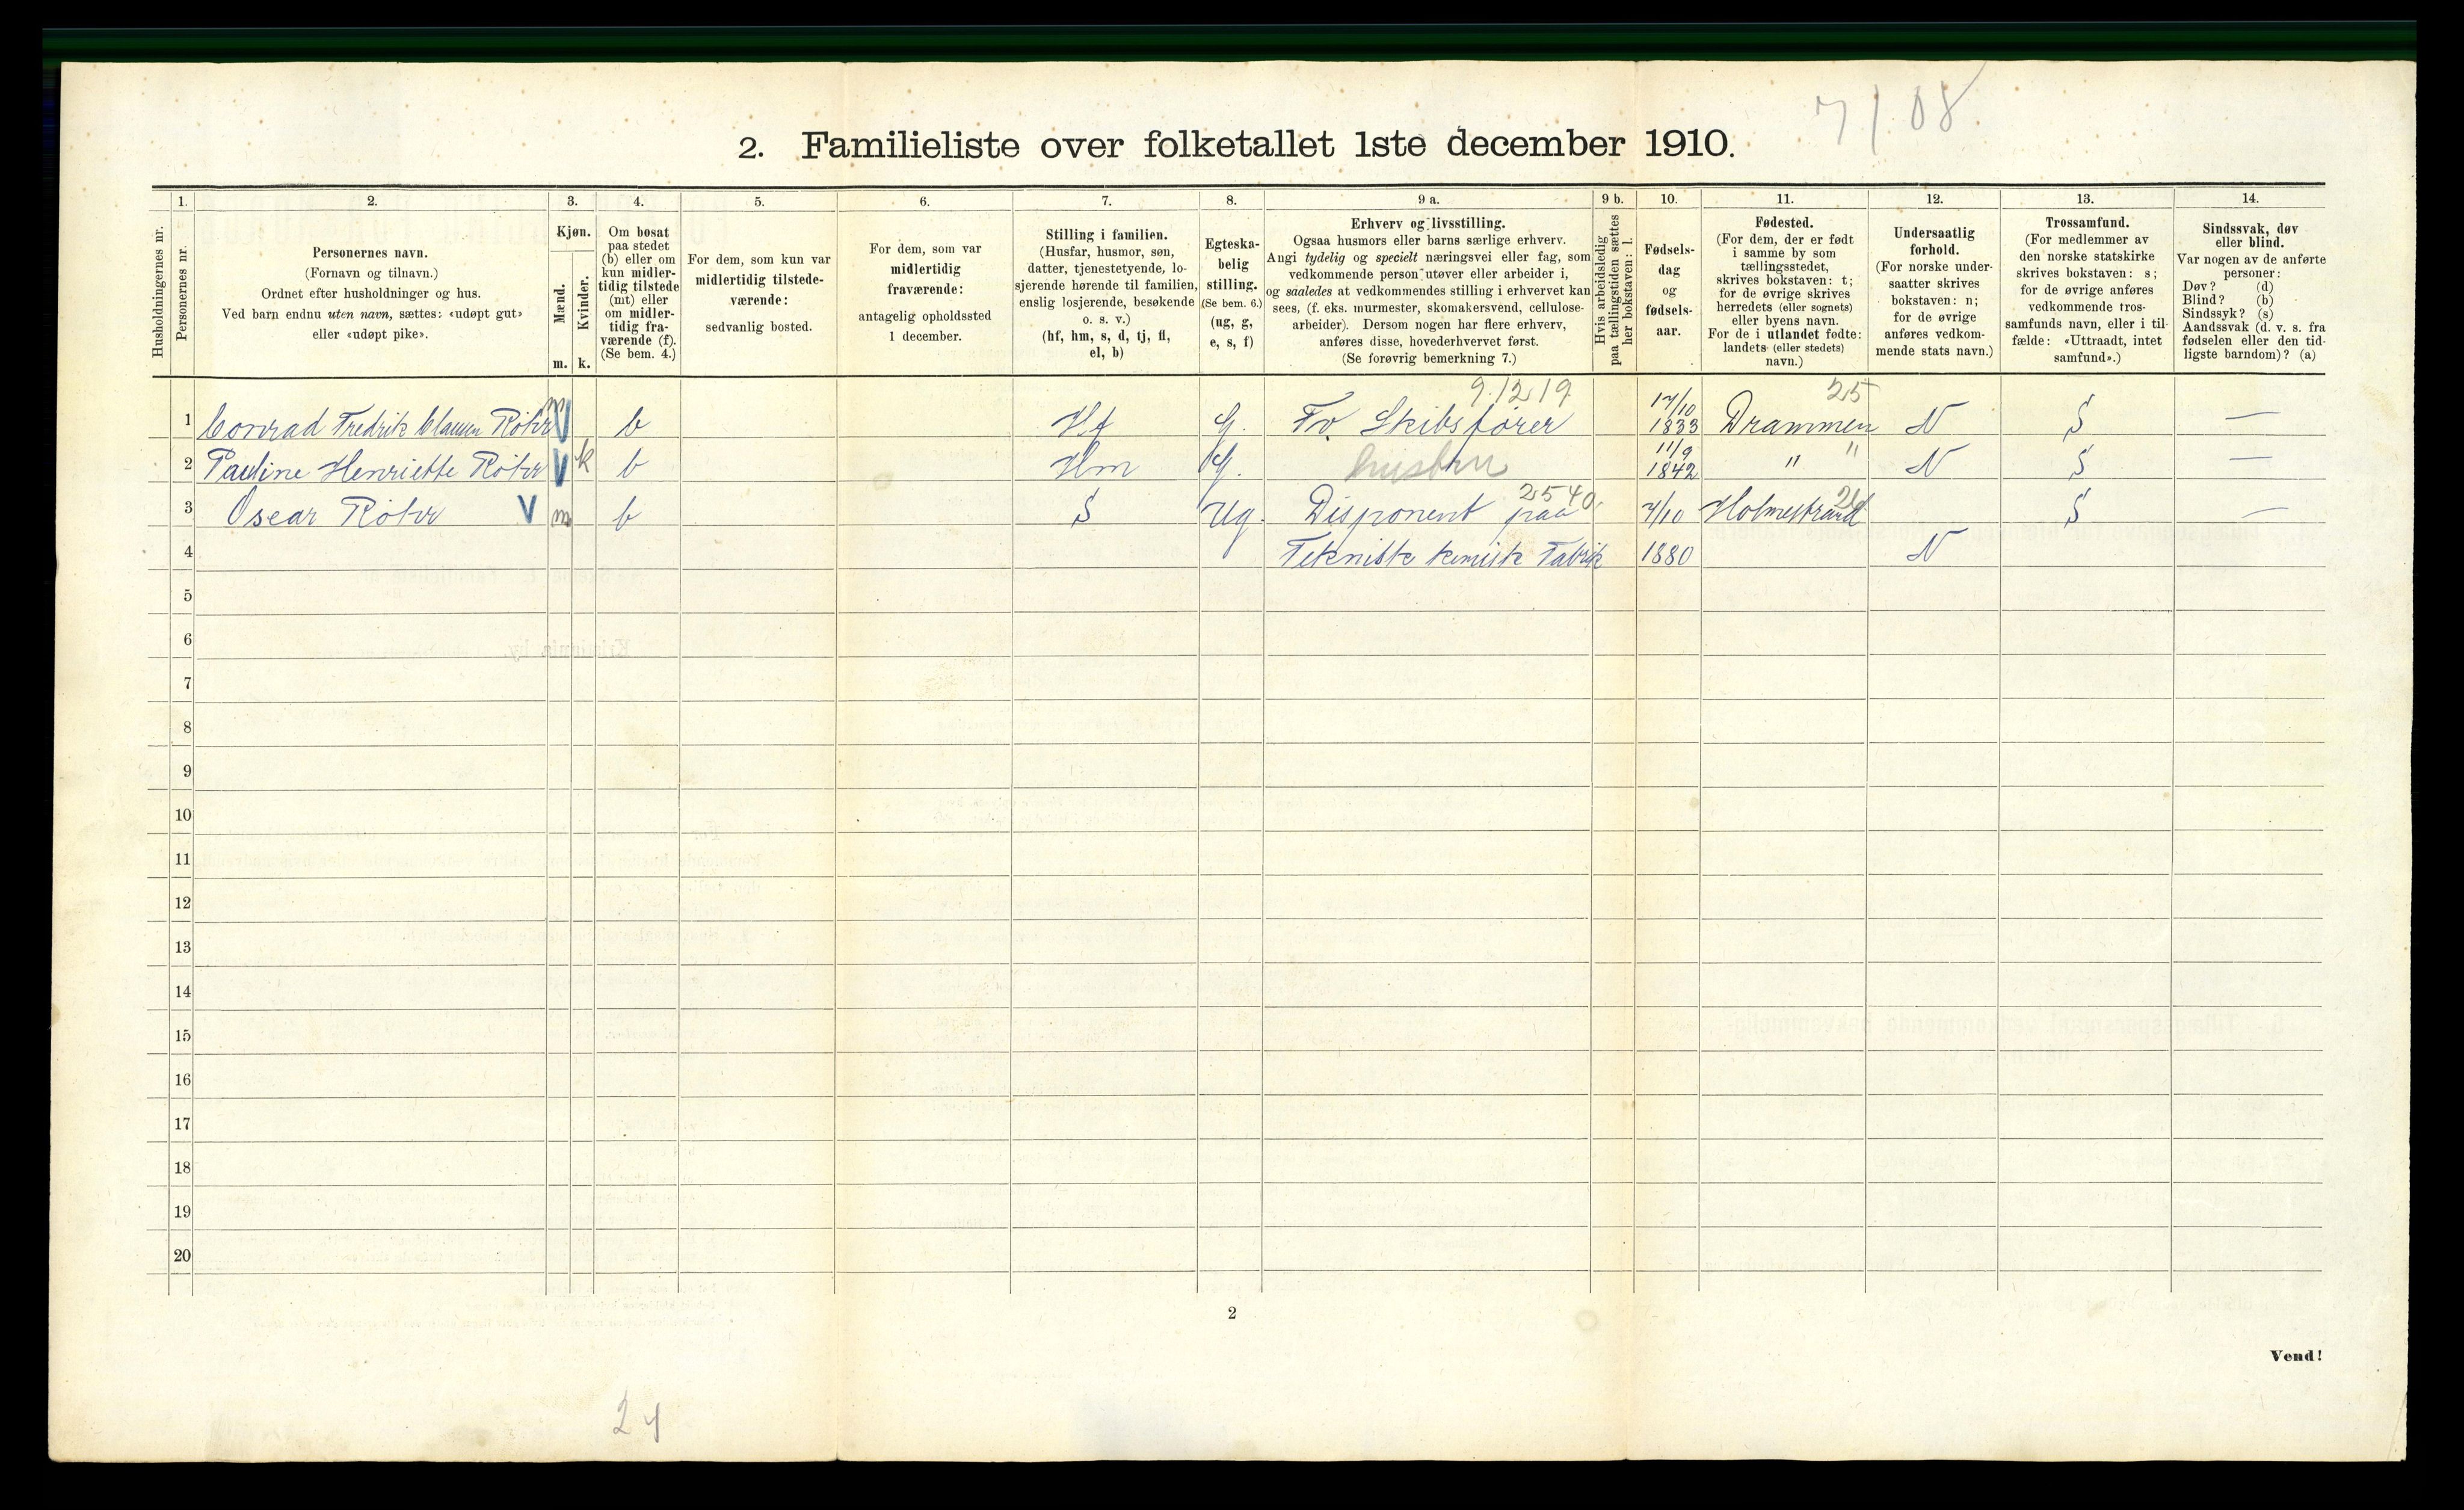 7/08.
2. Familieliste over folketallet 1ste december 1910.
Husholdningernes nr.
1. Personernes nr.
2. Personernes navn.
(Fornavn og tilnavn.)
Ordnet efter husholdninger og hus.
Ved barn endnu uten navn, sættes: «udøpt gut»
eller «udøpt pike».
3. Kjøn.
Mænd. Kvinder.
m. k.
4. Om bosat
paa stedet
(b) eller om
kun midler-
tidig tilstede
(mt) eller
om midler-
tidig fra-
værende (f).
(Se bem. 4.)
5. For dem, som kun var
midlertidig tilstede-
værende:
sedvanlig bosted.
6. For dem, som var
midlertidig
fraværende:
antagelig opholdssted
1 december.
7. Stilling i familien.
(Husfar, husmor, søn,
datter, tjenestetyende, lo-
sjerende hørende til familien,
enslig losjerende, besøkende
o. s. v.)
(hf, hm, s, d, tj, fl,
el, b)
8. Egteska-
belig
stilling.
(Se bem. 6.)
(ug, g,
e, s, f)
9 a. Erhverv og livsstilling.
Ogsaa husmors eller barns særlige erhverv.
Angi tydelig og specielt næringsvei eller fag, som
vedkommende person utøver eller arbeider i,
og saaledes at vedkommendes stilling i erhvervet kan
sees, (f. eks. murmester, skomakersvend, cellulose-
arbeider). Dersom nogen har flere erhverv,
anføres disse, hovederhvervet først.
(Se forøvrig bemerkning 7.)
9 b. Hvis arbeidsledig
paa tællingstiden sættes
her bokstaven: l.
10. Fødsels-
dag
og
fødsels-
aar.
11. Fødested.
(For dem, der er født
i samme by som
tællingsstedet,
skrives bokstaven: t;
for de øvrige skrives
herredets (eller sognets)
eller byens navn.
For de i utlandet fødte:
landets (eller stedets)
navn.)
12. Undersaatlig
forhold.
(For norske under-
saatter skrives
bokstaven: n;
for de øvrige
anføres vedkom-
mende stats navn.)
13. Trossamfund.
(For medlemmer av
den norske statskirke
skrives bokstaven: s;
for de øvrige anføres
vedkommende tros-
samfunds navn, eller i til-
fælde: «Uttraadt, intet
samfund».)
14. Sindssvak, døv
eller blind.
Var nogen av de anførte
personer:
Døv? (d)
Blind? (b)
Sindssyk? (s)
Aandssvak (d. v. s. fra
fødselen eller den tid-
ligste barndom)? (a)
9.12 19 25
1 Conrad Fredrik Clausen Röhr m V b Hf G. Fv. Skibsfører 17/10 1833 Drammen N S —
2 Pauline Henriette Röhr V k b Hm G. husbru 11/9 1842 " " N S —
3 Oscar Röhr V m b S Ug. Disponent paa 2540. 7/10 Holmestrand S —
4 Teknisk kemisk Fabrik 1880 N
5
6
7
8
9
10
11
12
13
14
15
16
17
18
19
20
2
Vend!